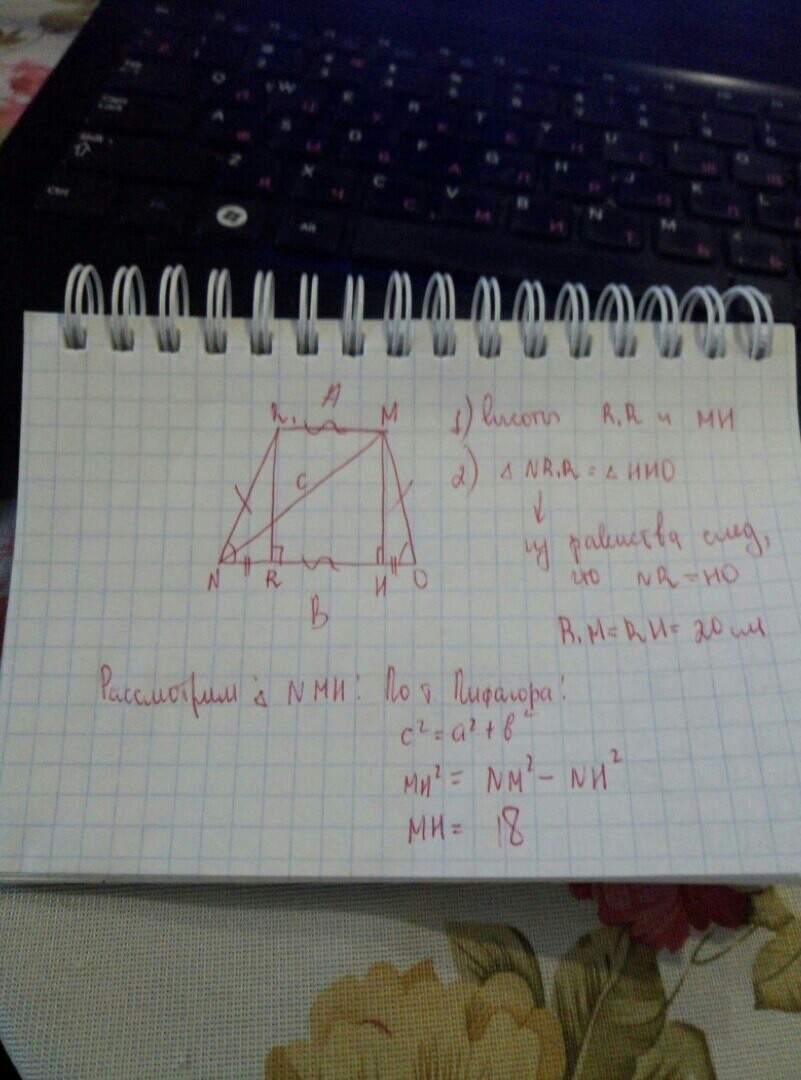 A
R₁ M
C
N R H O
B
1) Высоты R₁R и MH
2) △ NR₁R = △ HHO
↓
из равенства след,
что NR = HO
R₁M = RH = 20 см
Рассмотрим △ NMH: По т Пифагора:
c² = a² + b²
MH² = NM² - NH²
MH = 18